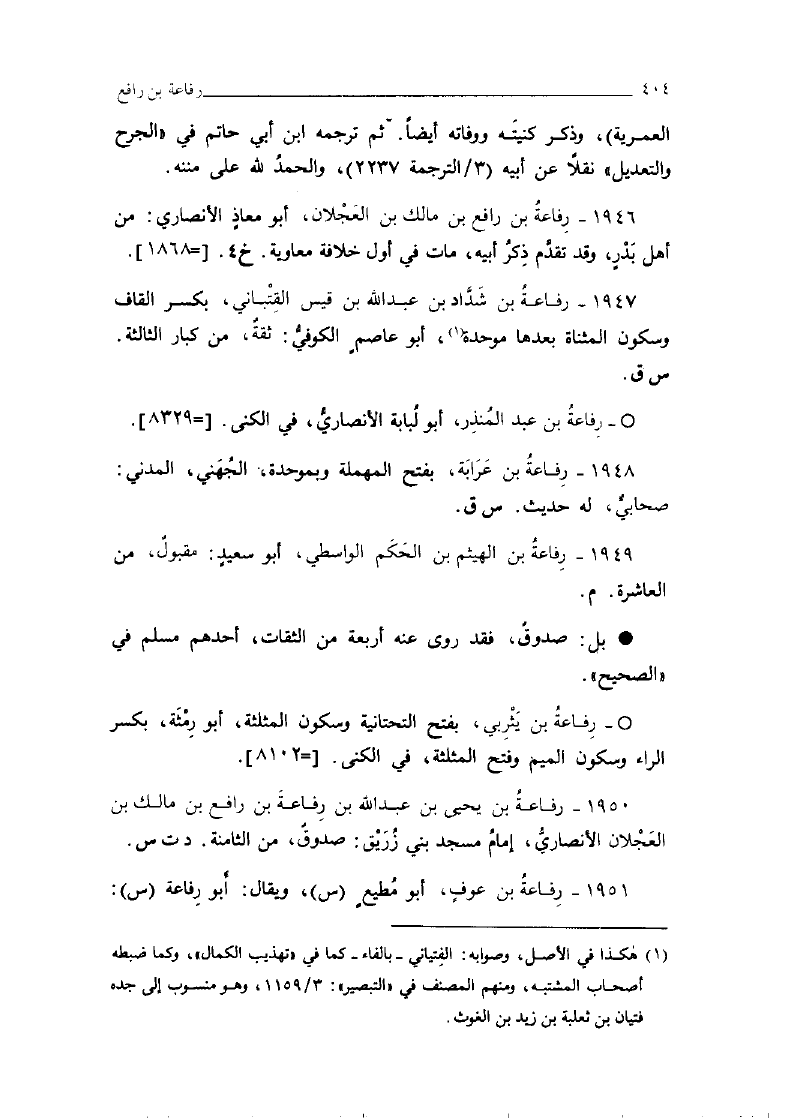 ٤٠٤ رفاعة بن رافع
العمرية)، وذكر كنيتَه ووفاته أيضاً. ثم ترجمه ابن أبي حاتم في «الجرح
والتعديل» نقلًا عن أبيه (٣/الترجمة ٢٢٣٧)، والحمدُ لله على مننه.
١٩٤٦ - رِفاعةُ بن رافع بن مالك بن العَجْلان، أبو معاذٍ الأنصاري: من
أهل بَدْرٍ، وقد تقدَّم ذِكرُ أبيه، مات في أول خلافة معاوية. خ٤. [=١٨٦٨].
١٩٤٧ - رِفاعةُ بن شَدَّاد بن عبدالله بن قيس القِتْباني، بكسر القاف
وسكون المثناة بعدها موحدة(١)، أبو عاصمٍ الكوفيُّ: ثقةٌ، من كبار الثالثة.
س ق.
○ - رِفاعةُ بن عبد المُنذِر، أبو لُبابة الأنصاريُّ، في الكنى. [=٨٣٢٩].
١٩٤٨ - رِفاعةُ بن عَرَابَة، بفتح المهملة وبموحدة، الجُهَني، المدني:
صحابيٌّ، له حديث. س ق.
١٩٤٩ - رِفاعةُ بن الهيثم بن الحَكَم الواسطي، أبو سعيدٍ: مقبولٌ، من
العاشرة. م.
● بل: صدوقٌ، فقد روى عنه أربعة من الثقات، أحدهم مسلم في
«الصحيح».
○ - رِفاعةُ بن يَثْرِبي، بفتح التحتانية وسكون المثلثة، أبو رِمْثَة، بكسر
الراء وسكون الميم وفتح المثلثة، في الكنى. [=٨١٠٢].
١٩٥٠ - رِفاعةُ بن يحيى بن عبدالله بن رِفاعةَ بن رافع بن مالك بن
العَجْلان الأنصاريُّ، إمامُ مسجد بني زُرَيْق: صدوقٌ، من الثامنة. د ت س.
١٩٥١ - رِفاعةُ بن عوفٍ، أبو مُطيعٍ (س)، ويقال: أبو رِفاعة (س):
(١) هٰكذا في الأصل، وصوابه: الفِتياني - بالفاء - كما في «تهذيب الكمال»، وكما ضبطه
أصحاب المشتبه، ومنهم المصنف في «التبصير»: ١١٥٩/٣، وهو منسوب إلى جده
فتيان بن ثعلبة بن زيد بن الغوث.